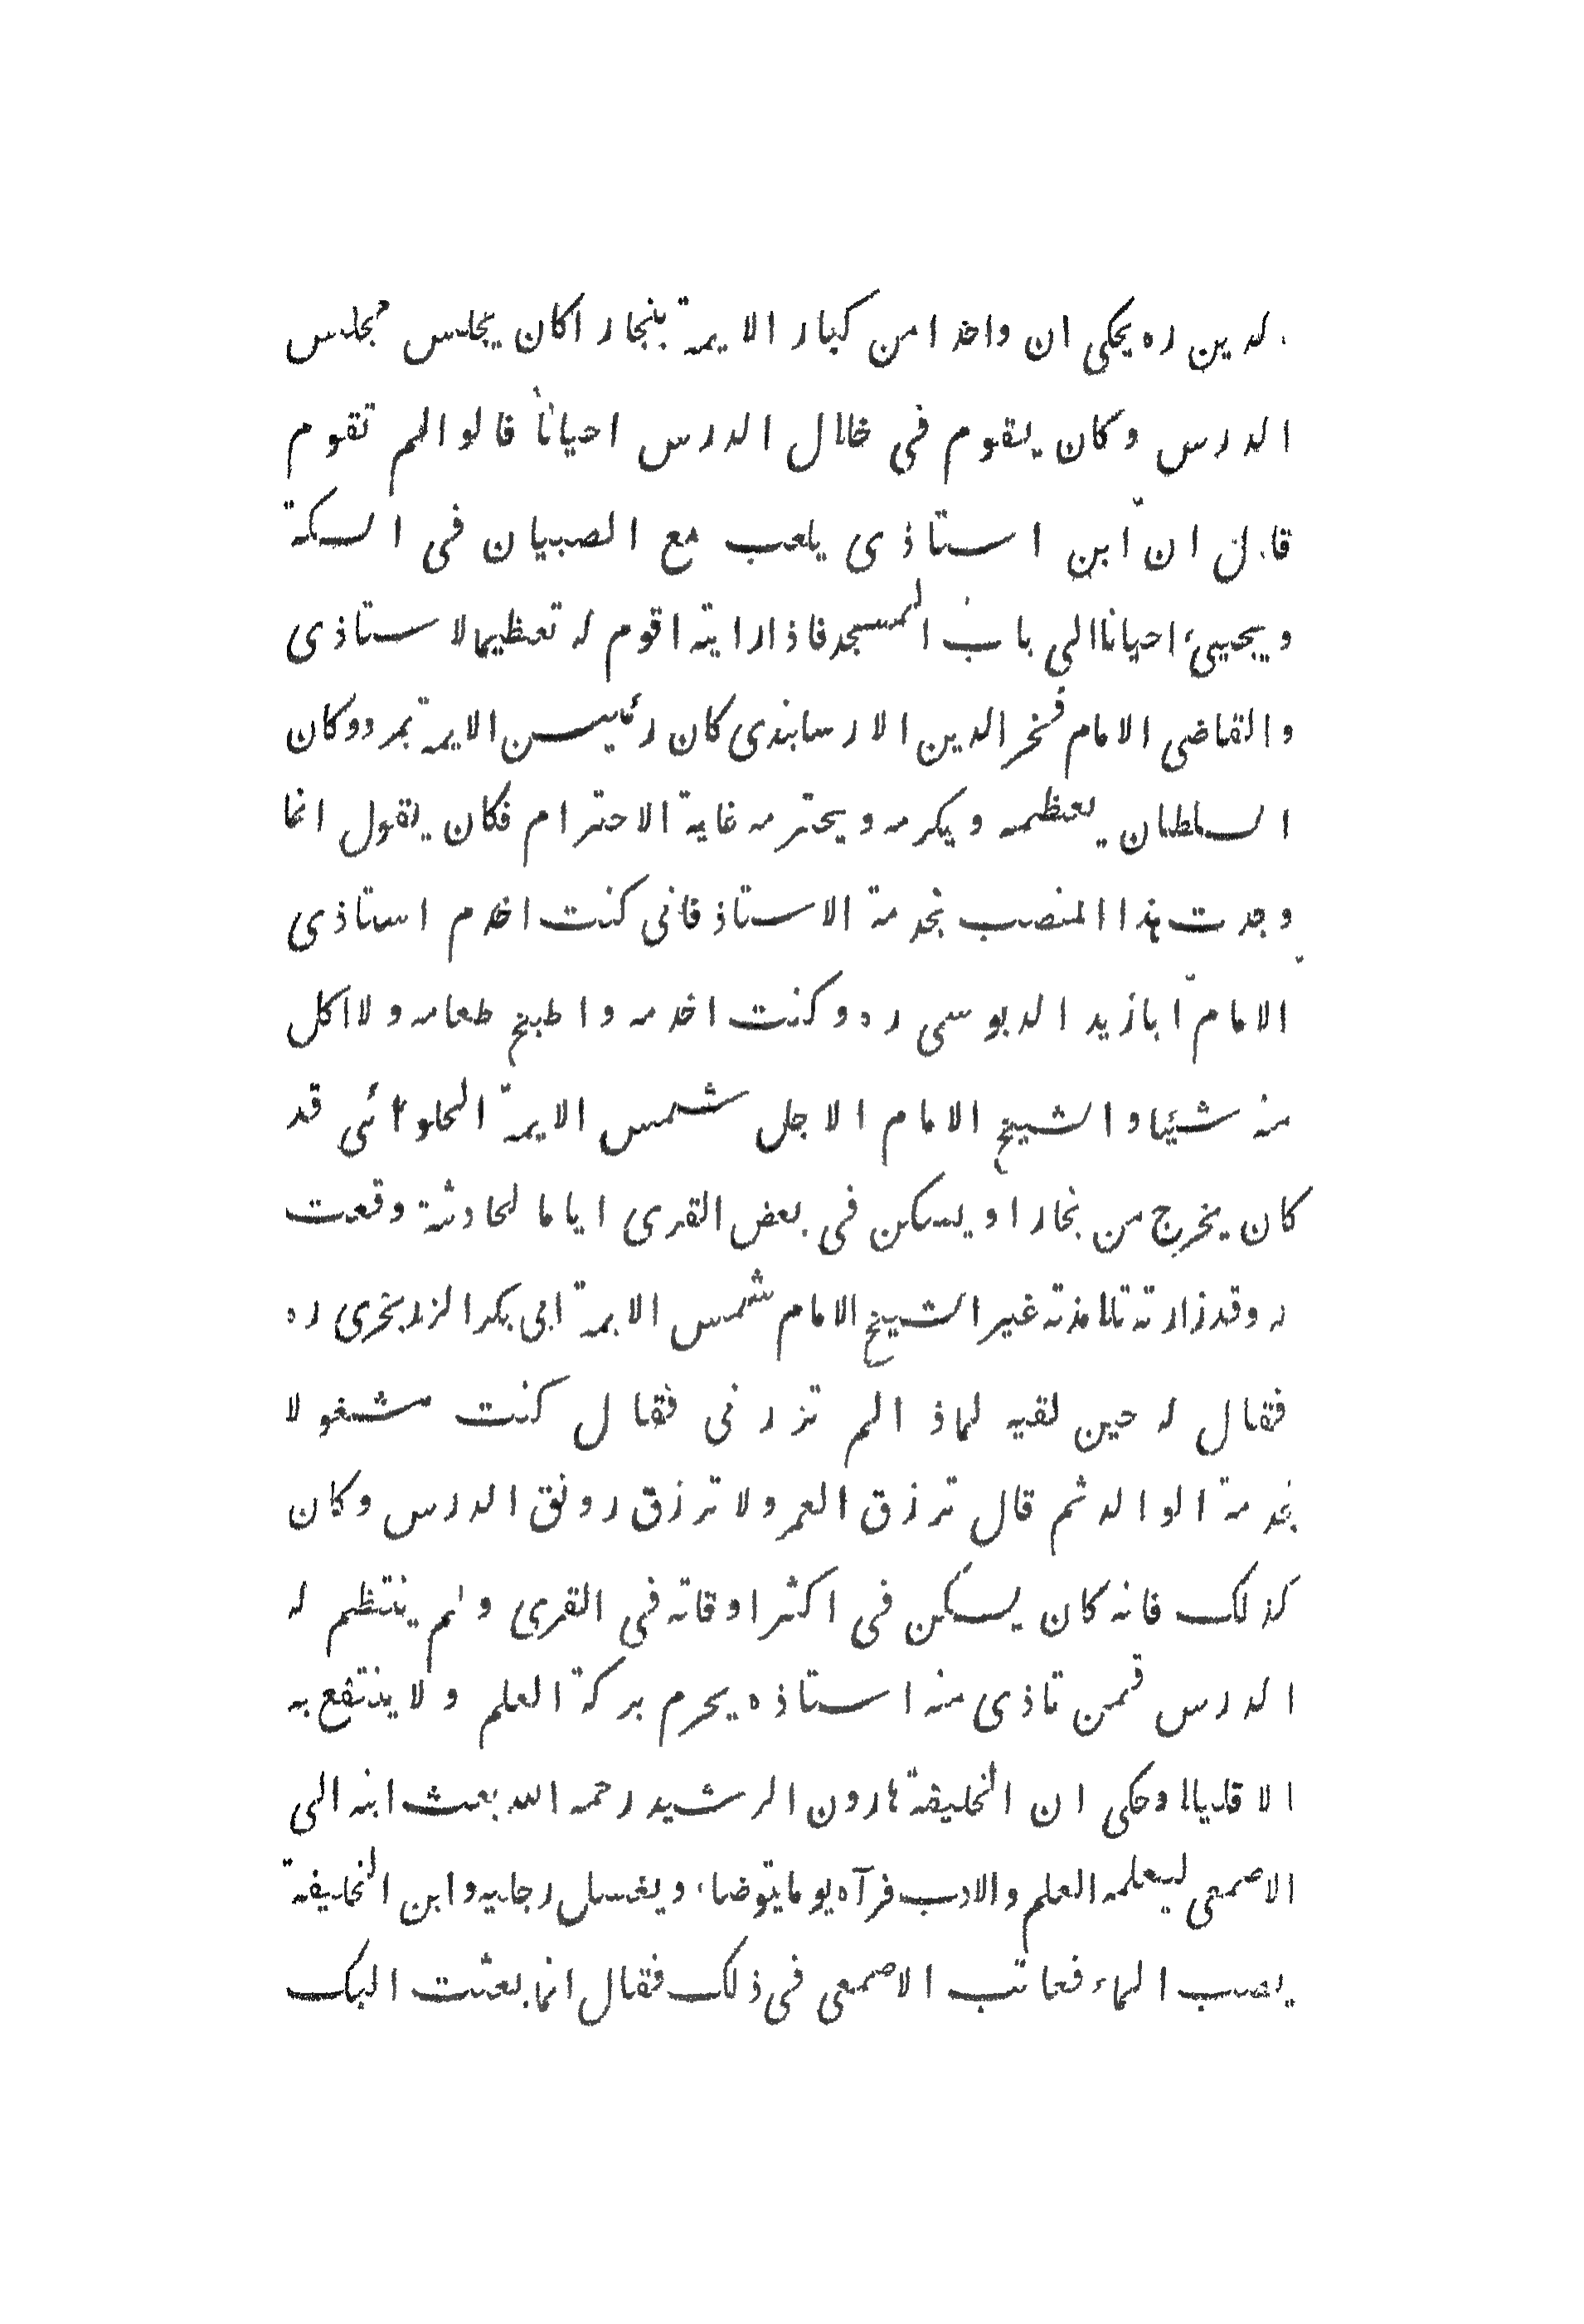 لدين ره يحكى ان واحدا من كبار الايمة ببخارا كان يجلس مجلس
الدرس وكان يقوم فى خلال الدرس احيانا قالوا لم تقوم
قال ان ابن استاذى يلعب مع الصبيان فى السكة
ويجيئ احيانا الى باب المسجد فاذا رايته اقوم له تعظيما لاستاذى
والقاضى الامام فخر الدين الارسابندى كان رئيس الايمة بمرو وكان
السلطان يعظمه ويكرمه ويحترمه غاية الاحترام فكان يقول انما
وجدت هذا المنصب بخدمة الاستاذ فانى كنت اخدم استاذى
الامام ابا زيد الدبوسى ره وكنت اخدمه واطبخ طعامه ولا اكل
منه شيئا والشيخ الامام الاجل شمس الايمة الحلوائى قد
كان يخرج من بخارا ويسكن فى بعض القرى اياما لحادثة وقعت
له وقد زارته تلامذته غير الشيخ الامام شمس الايمة ابى بكر الزربخرى ره
فقال له حين لقيه لماذا لم تزرنى فقال كنت مشغولا
بخدمة الوالد ثم قال ترزق العمر ولا ترزق رونق الدرس وكان
كذلك فانه كان يسكن فى اكثر اوقاته فى القرى ولم ينتظم له
الدرس فمن تاذى منه استاذه يحرم بركة العلم ولا ينتفع به
الا قليلا وحكى ان الخليفة هارون الرشيد رحمه الله بعث ابنه الى
الاصمعى ليعلمه العلم والادب فرآه يوما يتوضاء ويغسل رجليه وابن الخليفة
يصب الماء فعاتب الاصمعى فى ذلك فقال انما بعثت اليك